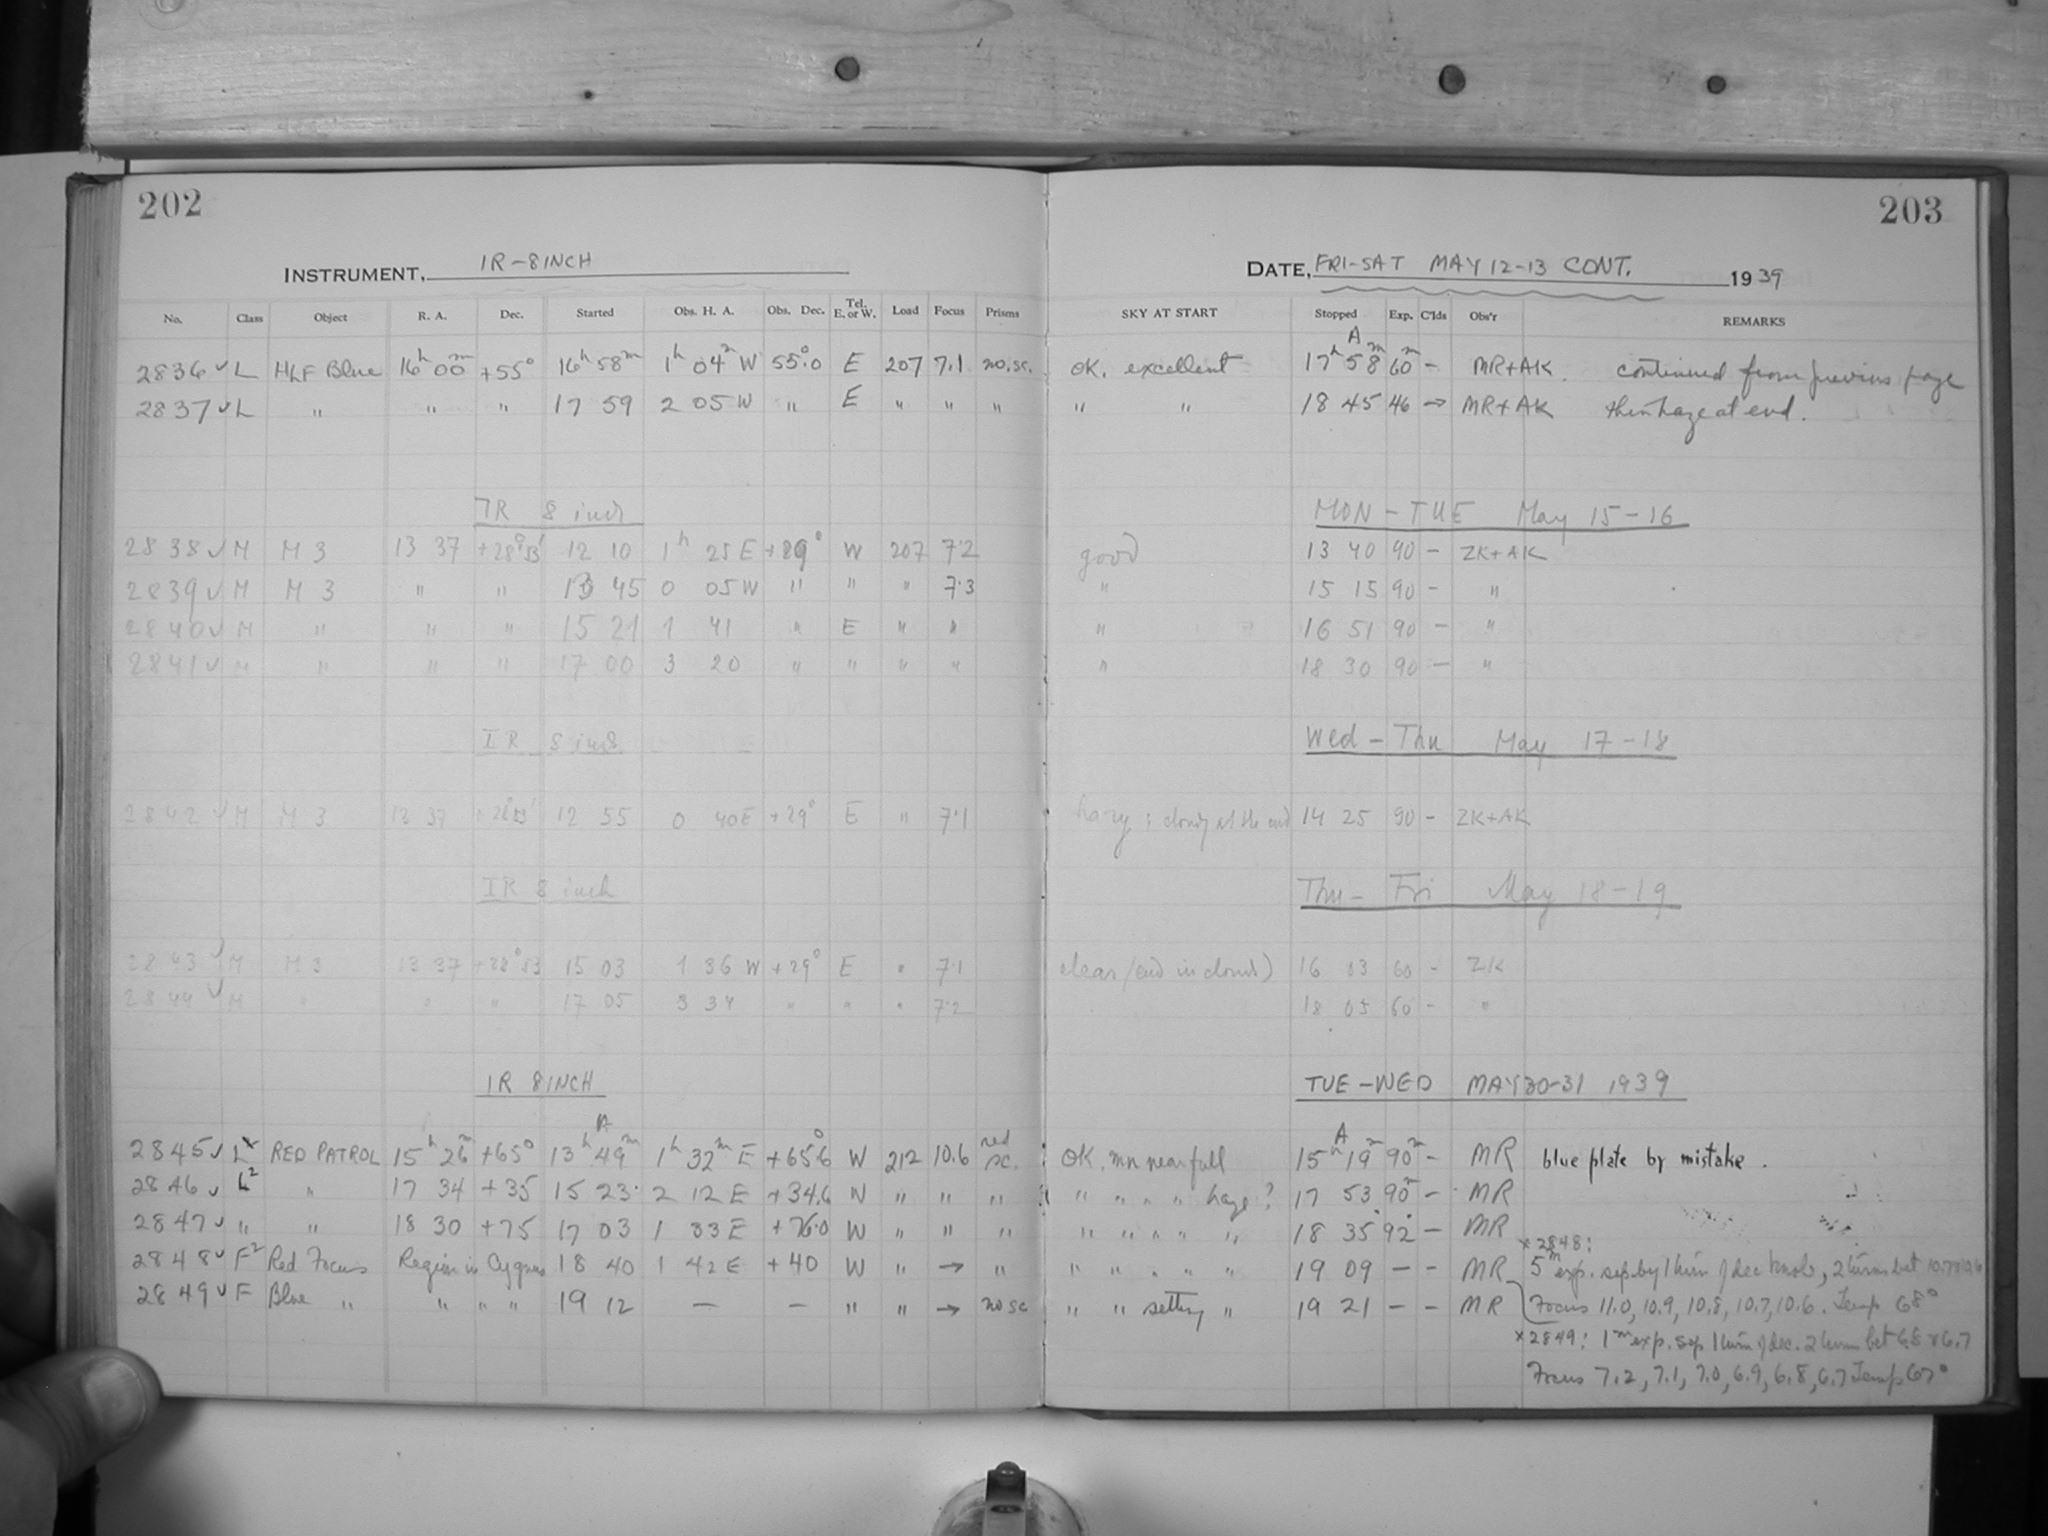 202
INSTRUMENT, IR-8 INCH
No. Class Object R. A. Dec. Started Obs. H. A. Obs. Dec. Tel. E. or W. Load Focus Prisms
2836 ✓ L HLF Blue 16h 00m +55° 16h 58m 1h 04m W 55°.0 E 207 7.1 no. sc.
2837 ✓ L " " " 17 59 2 05 W " E " " "
IR 8 inch
2838 ✓ M M 3 13 37 +28°53' 12 10 1h 25 E +29° W 207 7.2
2839 ✓ M M 3 " " 13 45 0 05 W " " " 7.3
2840 ✓ M " " " 15 21 1 41 " E " "
2841 ✓ M " " " 17 00 3 20 " " " "
IR 8 inch
2842 ✓ M M 3 13 37 +28°53' 12 55 0 40 E +29° E " 7.1
IR 8 inch
2843 ✓ M M 3 13 37 +28°53 15 03 1 36 W +29° E " 7.1
2844 ✓ M " " " 17 05 3 37 " " " 7.2
IR 8 INCH
2845 ✓ Lx RED PATROL 15h 26m +65° 13h 49m A 1h 32m E +65°6 W 212 10.6 red sc.
2846 ✓ L2 " 17 34 +35 15 23 2 12 E +34.6 W " " "
2847 ✓ " " 18 30 +75 17 03 1 33 E +76.0 W " " "
2848 ✓ F2 Red Focus Region in Cygnus 18 40 1 42 E +40 W " → "
2849 ✓ F Blue " " " " 19 12 — — " " → no sc
203
DATE, FRI-SAT MAY 12-13 CONT. 1939
SKY AT START Stopped Exp. C'lds Obs'r REMARKS
OK. excellent 17h 58m A 60m — MR+AK. continued from previous page
" " 18 45 46 → MR+AK thin haze at end.
MON - TUE May 15-16
good 13 40 90 - ZK+AK
" 15 15 90 - "
" 16 51 90 - "
" 18 30 90 - "
Wed - Thu May 17-18
hazy; cloudy at the end 14 25 90 - ZK+AK
Thu - Fri May 18-19
clear (end in clouds) 16 03 60 - ZK
18 05 60 - "
TUE-WED MAY 30-31 1939
OK. mn near full 15h 19m A 90m - MR blue plate by mistake.
" " " " haze? 17 53 90m - MR
" " " " " 18 35 92 - MR
" " " " " 19 09 - - MR
x 2848:
5m exp. sep. by 1 turn of dec knob, 2 turns bet 10.7 & 10.6
" " setting " 19 21 - - MR
Focus 11.0, 10.9, 10.8, 10.7, 10.6. Temp 68°
x 2849: 1m exp. sep 1 turn of dec. 2 turns bet 6.8 & 6.7
Focus 7.2, 7.1, 7.0, 6.9, 6.8, 6.7 Temp 67°